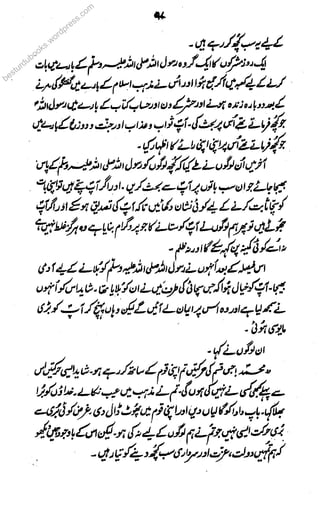 ۹۸
کے لیے یہ سب کچھ کر رہے ہیں۔
ایک روز مشرکوں کا ایک گروہ رسول اللہ صلی اللہ علیہ وسلم کے بارے میں بات
کرنے کے لیے کعبہ میں آ کر جمع ہوا اور اُس نے مذہب اسلام کے بارے میں گفتگو کی مرنے
کے بعد دوبارہ زندہ ہونے اور حشر کے دن اور حساب کتاب کے بارے میں رسول اللہ
جو کچھ فرماتے تھے اُس پر بحث کی۔ آپ ثواب و عذاب اور جنت و دوزخ کے بارے میں
جو کچھ فرماتے تھے اُس پر اپنی اپنی رائے کا اظہار کیا۔
آخر میں اُن لوگوں نے طے کیا کہ کچھ لوگوں کو رسول اللہ صلی اللہ علیہ وسلم کے پاس
بھیجا جائے جو ان سب باتوں پر آپ سے بحث کریں۔ اور اگر آپ سچے ہیں تو اپنی بات
کو سچا ثابت کرنے کے لیے کوئی نشان دکھائیں تاکہ آپ کی تصدیق ہو سکے اور اگر آپ
جھوٹے ہیں تو پھر ہم لوگوں نے آپ کو ستانے کا جو پروگرام بنایا ہے وہ ہرگز غلط نہیں ہے
نہ اسے کوئی کمینہ پن کہے گا اور نہ ظلم۔
اس فیصلہ کے بعد اُنہوں نے رسول اللہ صلی اللہ علیہ وسلم کو بلانے کے لیے آدمی
بھیجا۔ آپ کو خیال ہوا کہ جس سچائی کی طرف میں نے ان کو بلایا تھا۔ شاید اس کو اُنہوں
نے سمجھ لیا ہے اور وہ اس پر ایمان لے آئیں گے لیکن وہاں پہنچ کر آپ کو بڑی
مایوسی ہوئی۔
ان لوگوں نے کہا۔
محمد جیسی قسم کی حرکتیں تم اپنی قوم کے ساتھ کر رہے ہو۔ شاید ایسی حرکتیں اس
سے پہلے کبھی کسی نے نہیں کی ہوں گی۔ تم نے مذہب میں عیب نکالے۔ خداؤں کو بُرا
بھلا کہا۔ باپ دادا کو گالیاں دیں اور اپنی قوم میں پھوٹ ڈال دی۔ غرض کوئی بُری سے
بُری حرکت ایسی نہیں جو تم نے ہم لوگوں کے لیے نہ کی ہو۔ لیکن اس کے باوجود بھی دیکھو
کہ ہم تمہیں دولت، عزت اور سرداری سب کچھ دینے کو تیار ہیں۔
besturdubooks.wordpress.com